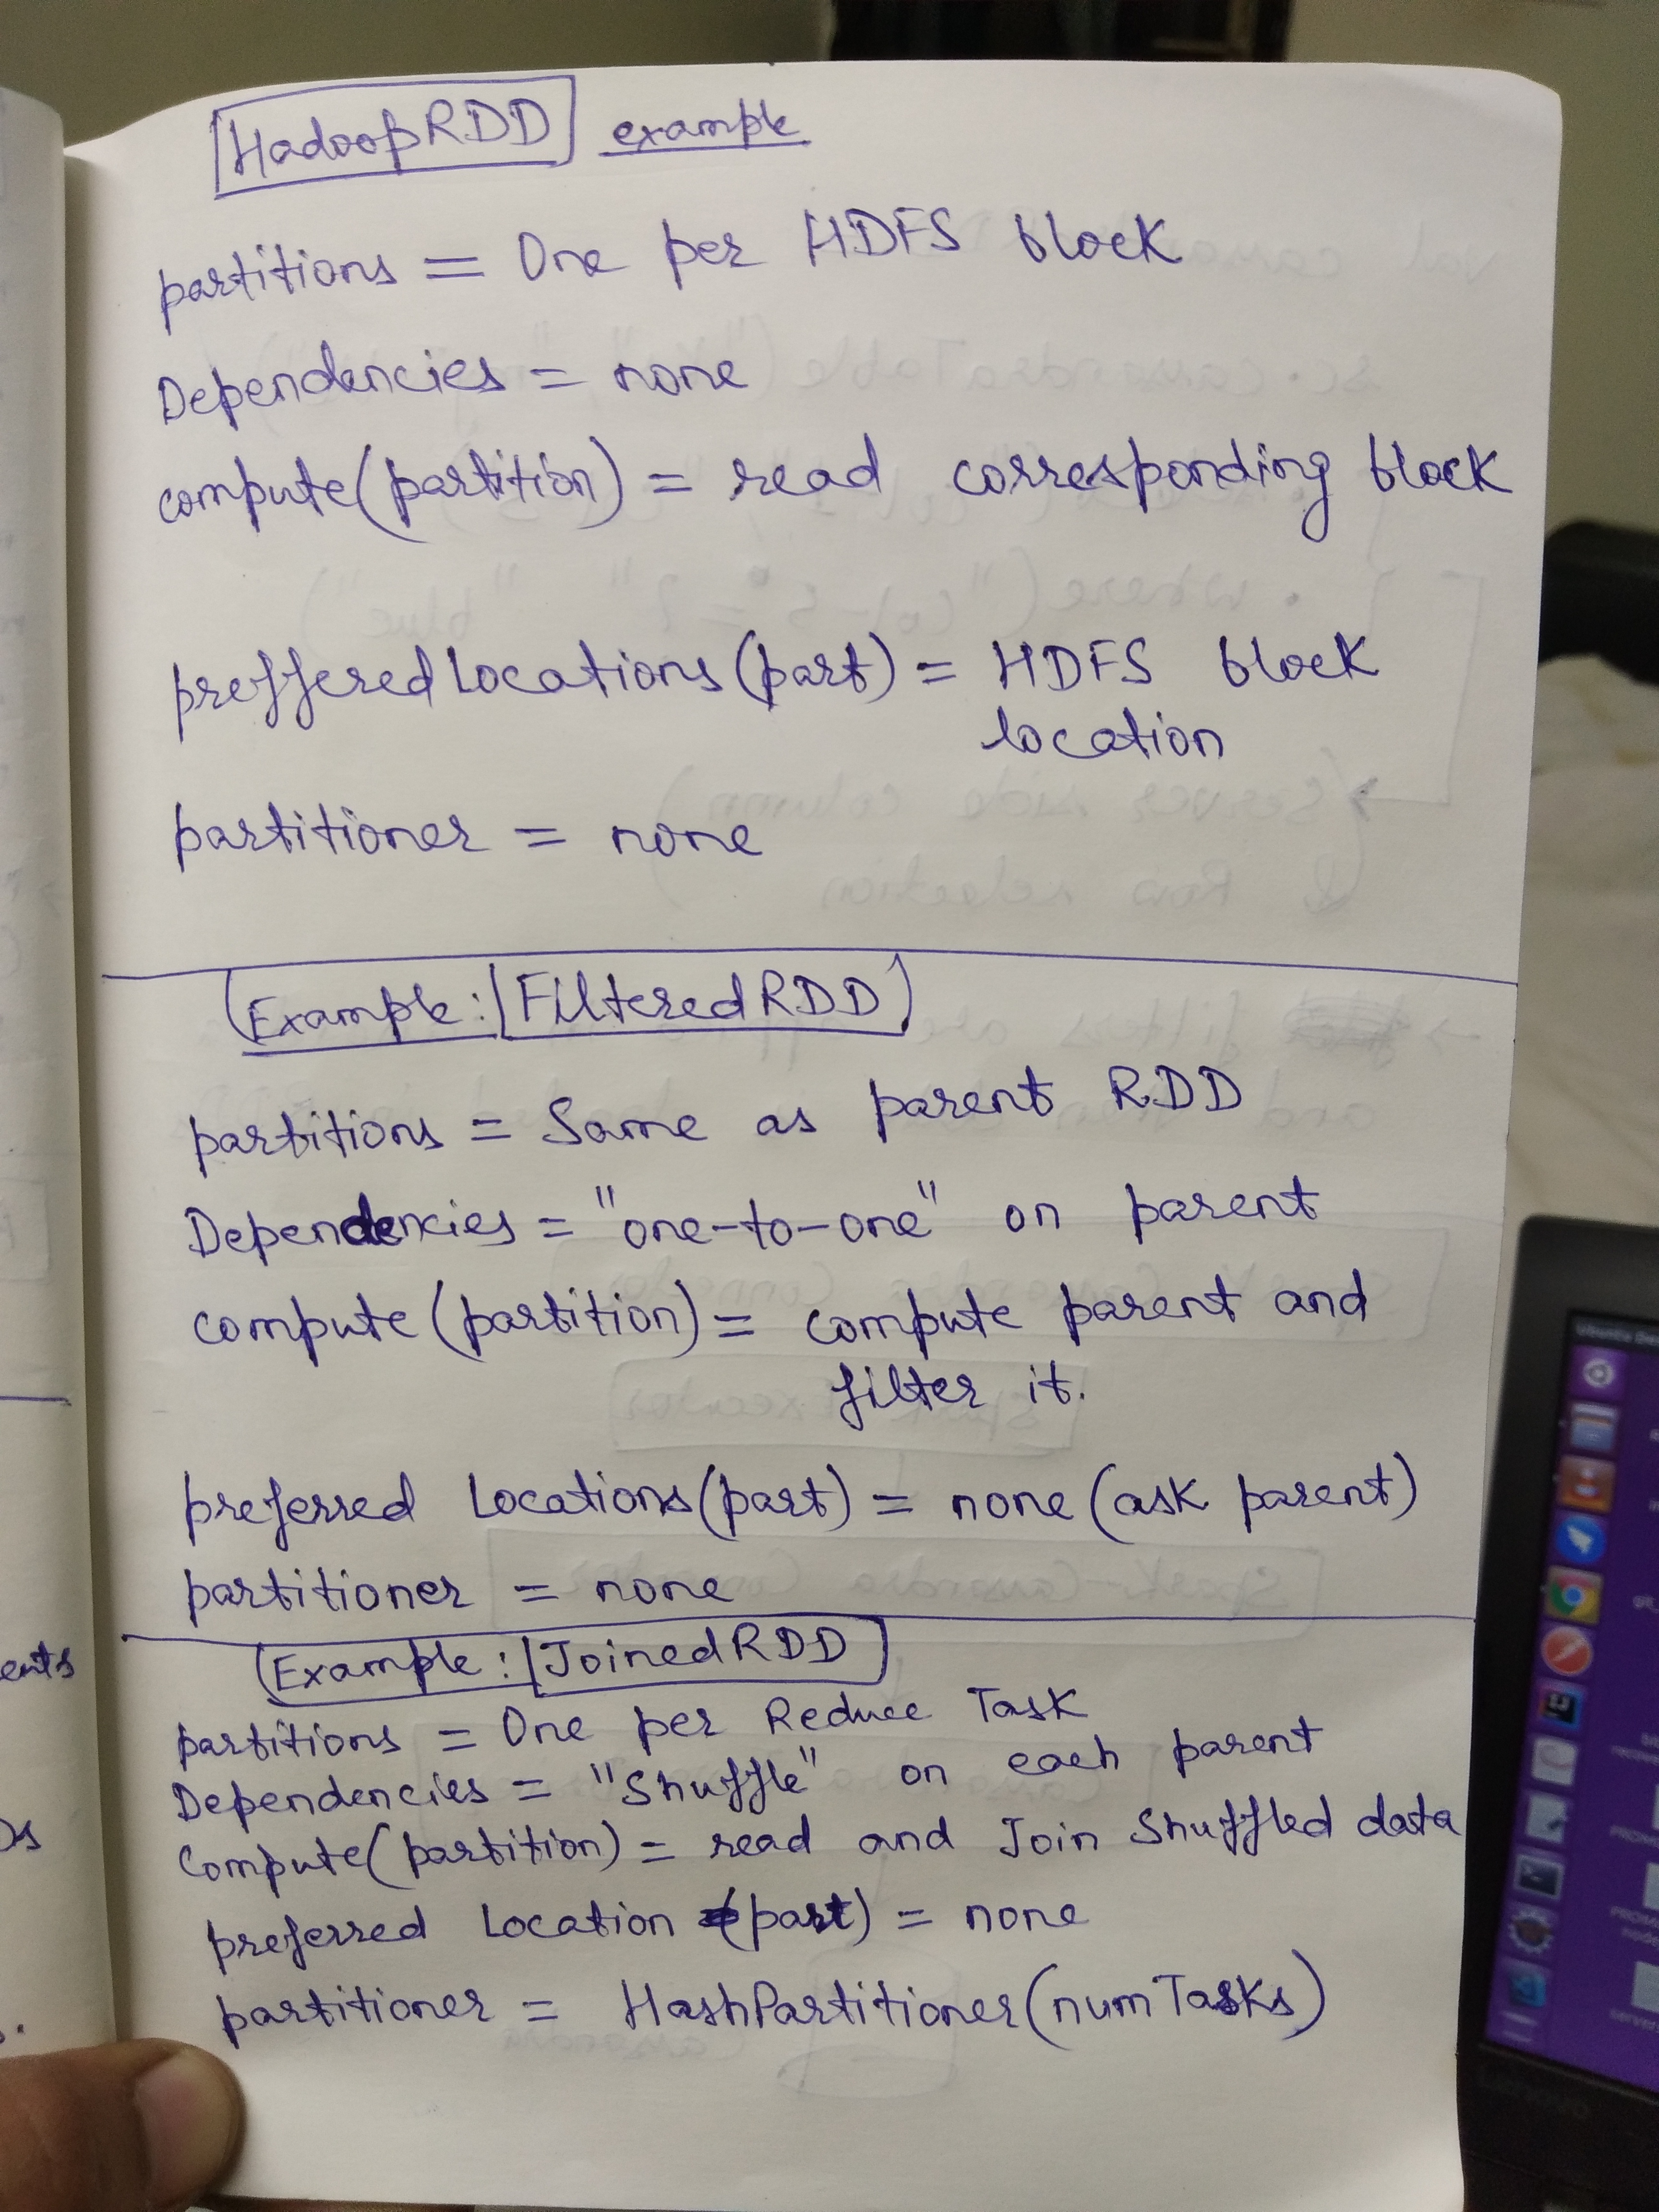 HadoopRDD example
partitions = One per HDFS block
Dependencies = none
compute(partition) = read corresponding block
preffered Locations (part) = HDFS block
location
partitioner = none
Example: FilteredRDD
partitions = Same as parent RDD
Dependencies = "one-to-one" on parent
compute (partition) = compute parent and
filter it.
preferred Locations (part) = none (ask parent)
partitioner = none
Example: JoinedRDD
partitions = One per Reduce Task
Dependencies = "Shuffle" on each parent
Compute(partition) = read and Join Shuffled data
preferred Location (part) = none
partitioner = HashPartitioner (numTasks)
ents